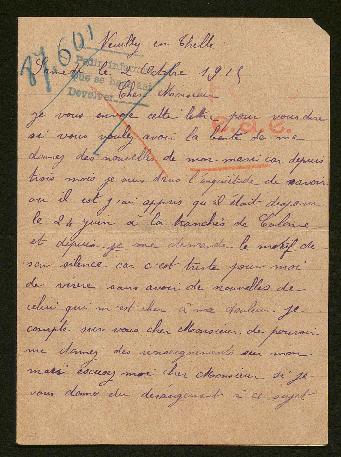 Neuilly en Thelle
87.601
Samedi le 2 Octobre 1915
Cher Monsieur
je vous envoye cette lettre pour vous dire
si vous voulez avoir la bonté de me
donnez des nouvelles de mon mari car depuis
trois mois je suis dans l'inquiétude de savoir
ou il est j'ai appris qu'il était disparu
le 24 juin a la tranchée de Calonne
et depuis je me demande le motif de
son silence car c'est triste pour moi
de vivre sans avoir de nouvelles de
celui qui m'est cher à ma douleur. je
compte sur vous cher Monsieur de pouvoir
me donnez des renseignements sur mon
mari escusez moi cher Monsieur si je
vous donne du dérangement à ce sujet